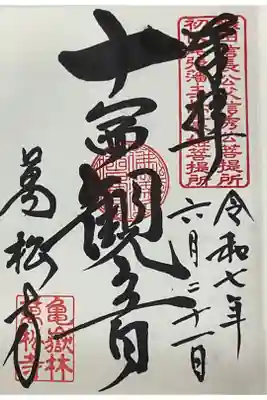 奉拝
織田信長公父信秀公菩提所
初代尾張藩主菩提所
令和七年
六月二十一日
十一面観音
萬松寺
亀嶽林
萬松寺